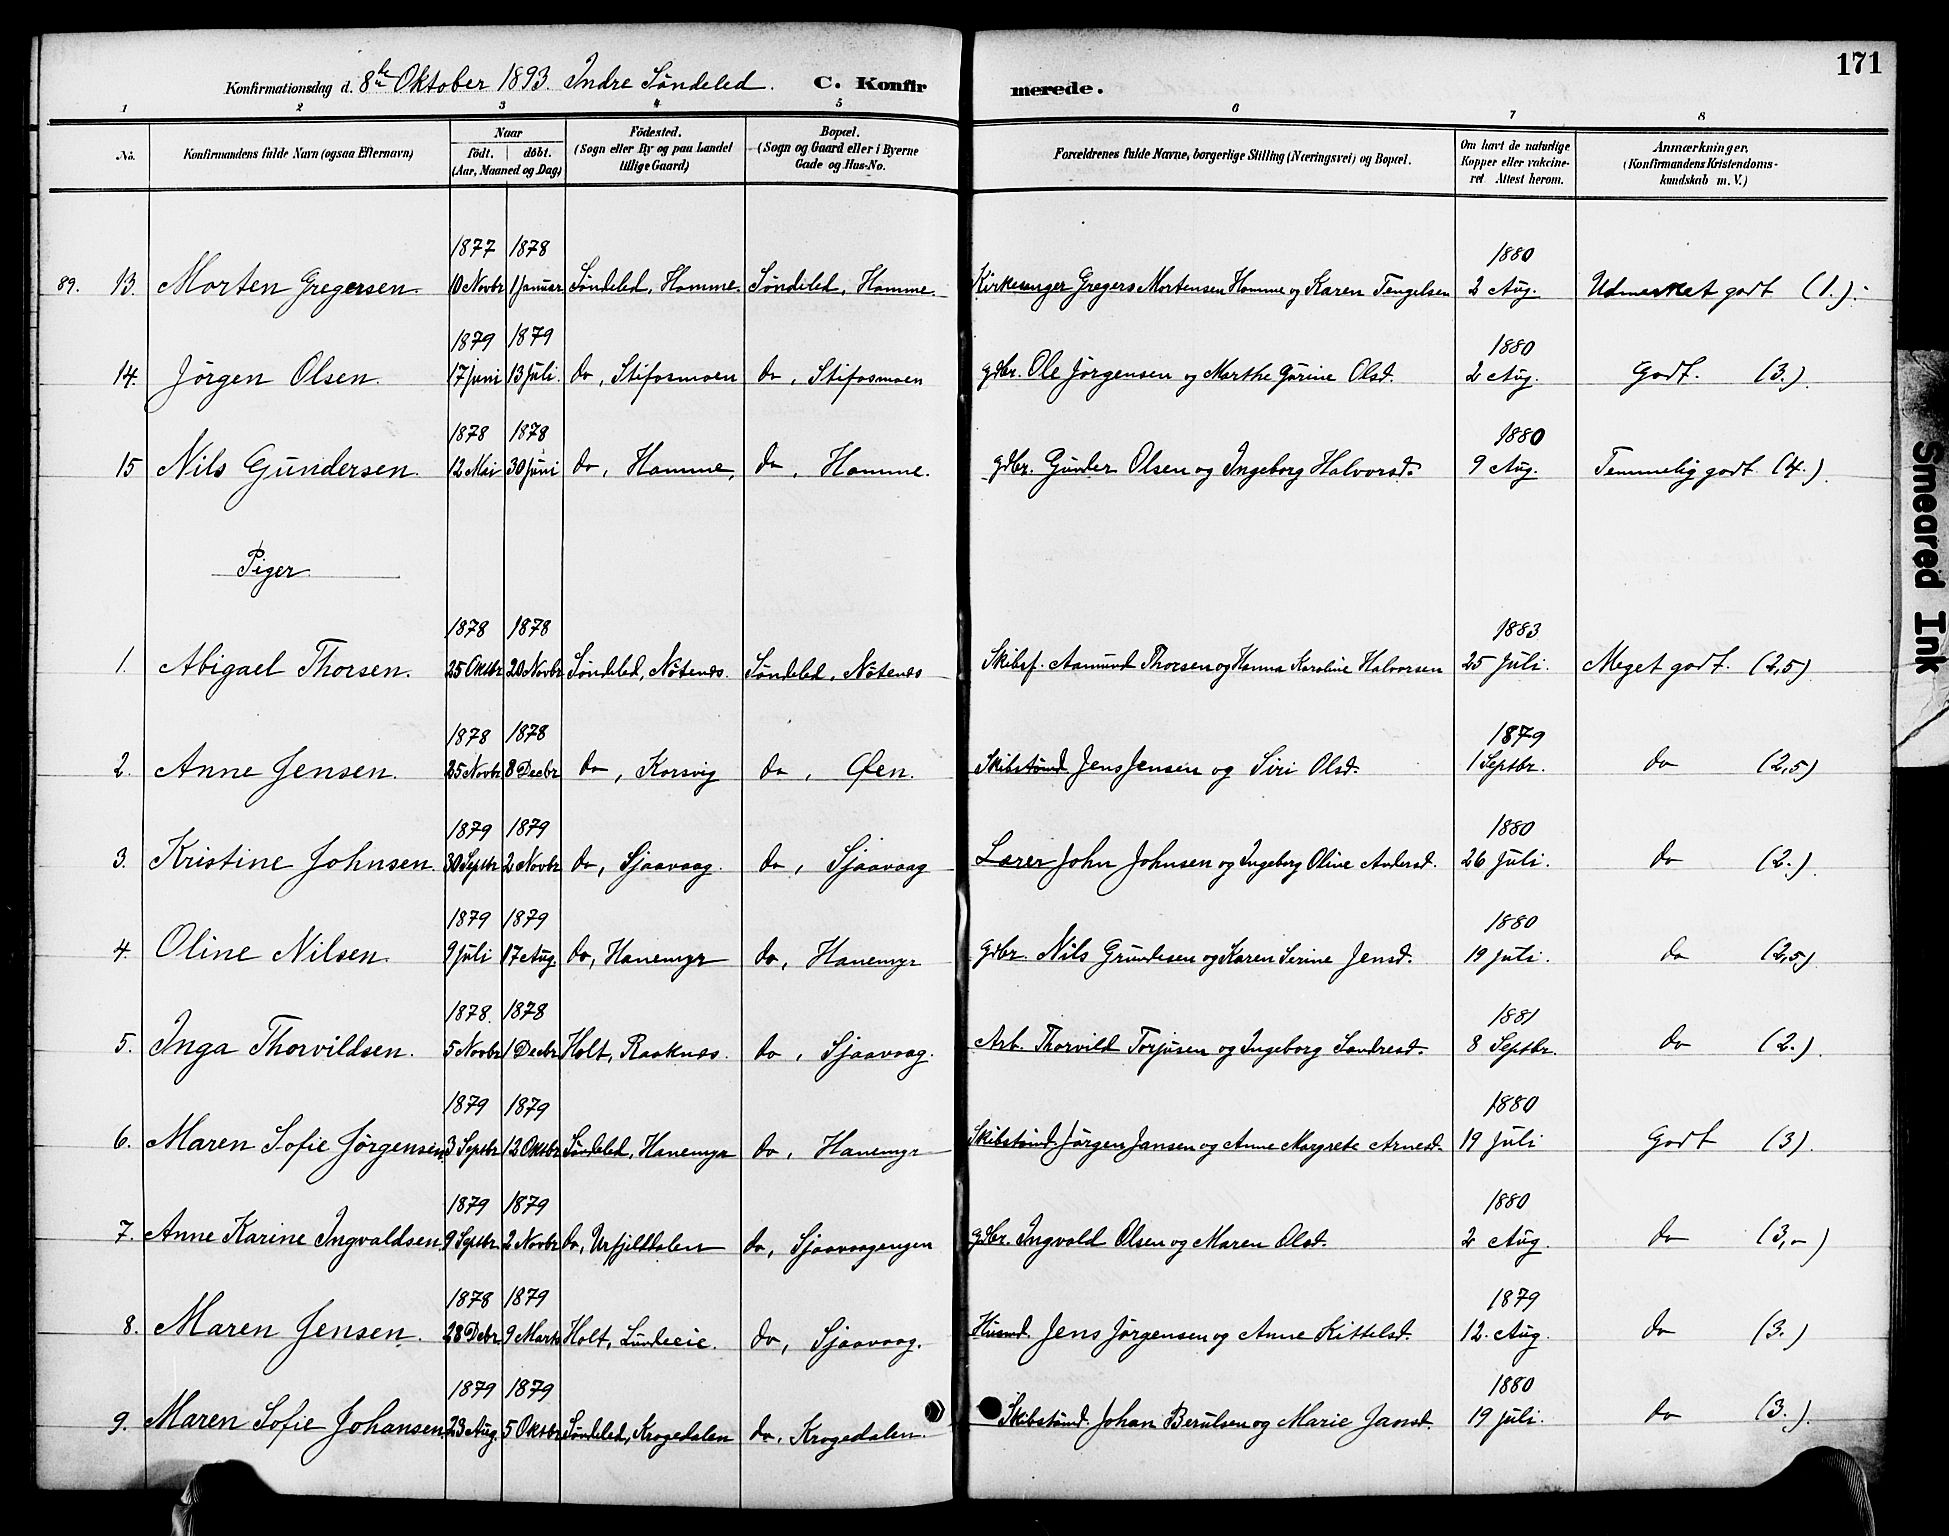 171
Konfirmationsdag d. 8de Oktober 1893. Indre Søndeled. C. Konfirmerede.
1 2 3 4 5 6 7 8
No. Konfirmandens fulde Navn (ogsaa Efternavn) Naar födt. döbt. (Aar, Maaned og Dag) Födested. (Sogn eller By og paa Landet tillige Gaard) Bopæl. (Sogn og Gaard eller i Byerne Gade og Hus-No. Forældrenes fulde Navne, borgerlige Stilling (Næringsvei) og Bopæl. Om havt de naturlige Kopper eller vakcineret Attest herom. Anmærkninger, (Konfirmandens Kristendomskundskab m. V.)
1877 1878 1880
89. 13. Morten Gregersen 10 Novbr 1 Januar Søndeled, Homme. Søndeled, Homme. Kirkesanger Gregers Mortensen Homme og Karen Tengelsen 2 Aug. Udmerket godt (1.).
1879 1879 1880
14. Jørgen Olsen. 17 juni 13 juli. do, Stifosmoen do, Stifosmoen gdbr. Ole Jørgensen og Marthe Gurine Olsd. 2 Aug. Godt. (3.).
1878 1878 1880
15 Nils Gundersen. 12 Mai 30 Juni do, Homme, do, Homme. gdbr. Gunder Olsen og Ingeborg Halvorsd. 9 Aug. Temmelig godt (4.).
Piger
1878 1878 1883
1. Abigael Thorsen. 25 Oktbr 20 Novbr Søndeled, Nøtenes. Søndeled, Nøtenes Skibsf. Aamund Thorsen og Hanna Karoline Halvorsen 25 Juli. Meget godt. (2,5)
1878 1878 1879
2. Anne Jensen. 25 Novbr 8 Decbr do, Korsvig do, Øen. Skibstømd Jens Jensen og Siri Olsd. 1 Septbr. do (2,5)
1879 1879 1880
3. Kristine Johnsen. 30 Septbr 2 Novbr do, Sjaavaag. do, Sjaavaag Lærer John Johnsen og Ingeborg Oline Andersd. 26 Juli. do (2.).
1879 1879 1880
4. Oline Nilsen 9 juli 17 Aug. do, Hanemyr do, Hanemyr gdbr. Nils Grundesen og Karen Serine Jensd. 19 juli. do (2,5).
1878. 1878 1881
5. Inga Thorvildsen. 5 Novbr 1 Decbr Holt, Raaknes. do, Sjaavaag. Arb. Thorvild Torjusen og Ingeborg Sondresd. 8 Septbr. do (2.).
1879 1879 1880
6. Maren Sofie Jørgensen 3 Septbr 12 Oktbr Søndeled, Hanemyr do, Hanemyr Skibstømd Jørgen Jansen og Anne Margrete Arnesd. 19 Juli Godt (3).
1879 1879 1880
7. Anne Karine Ingvaldsen 9 Septbr 2 Novbr do, Urfjelldalen do, Sjaavaagengen gdbr. Ingvald Olsen og Maren Olsd. 2 Aug. do (3,-)
1878 1879 1879
8. Maren Jensen. 28 Debr. 9 Marts Holt, Lundeeie. do, Sjaavaag. Husmd. Jens Jørgensen og Anne Kittelsd. 12. Aug. do (3.)
1879 1879 1880
9. Maren Sofie Johansen. 23 Aug. 5 Oktbr Søndeled, Krogedalen do, Krogedalen. Skibstømd. Johan Berulsen og Marie Jansd. 19 juli. do (3.).
Smeared Ink